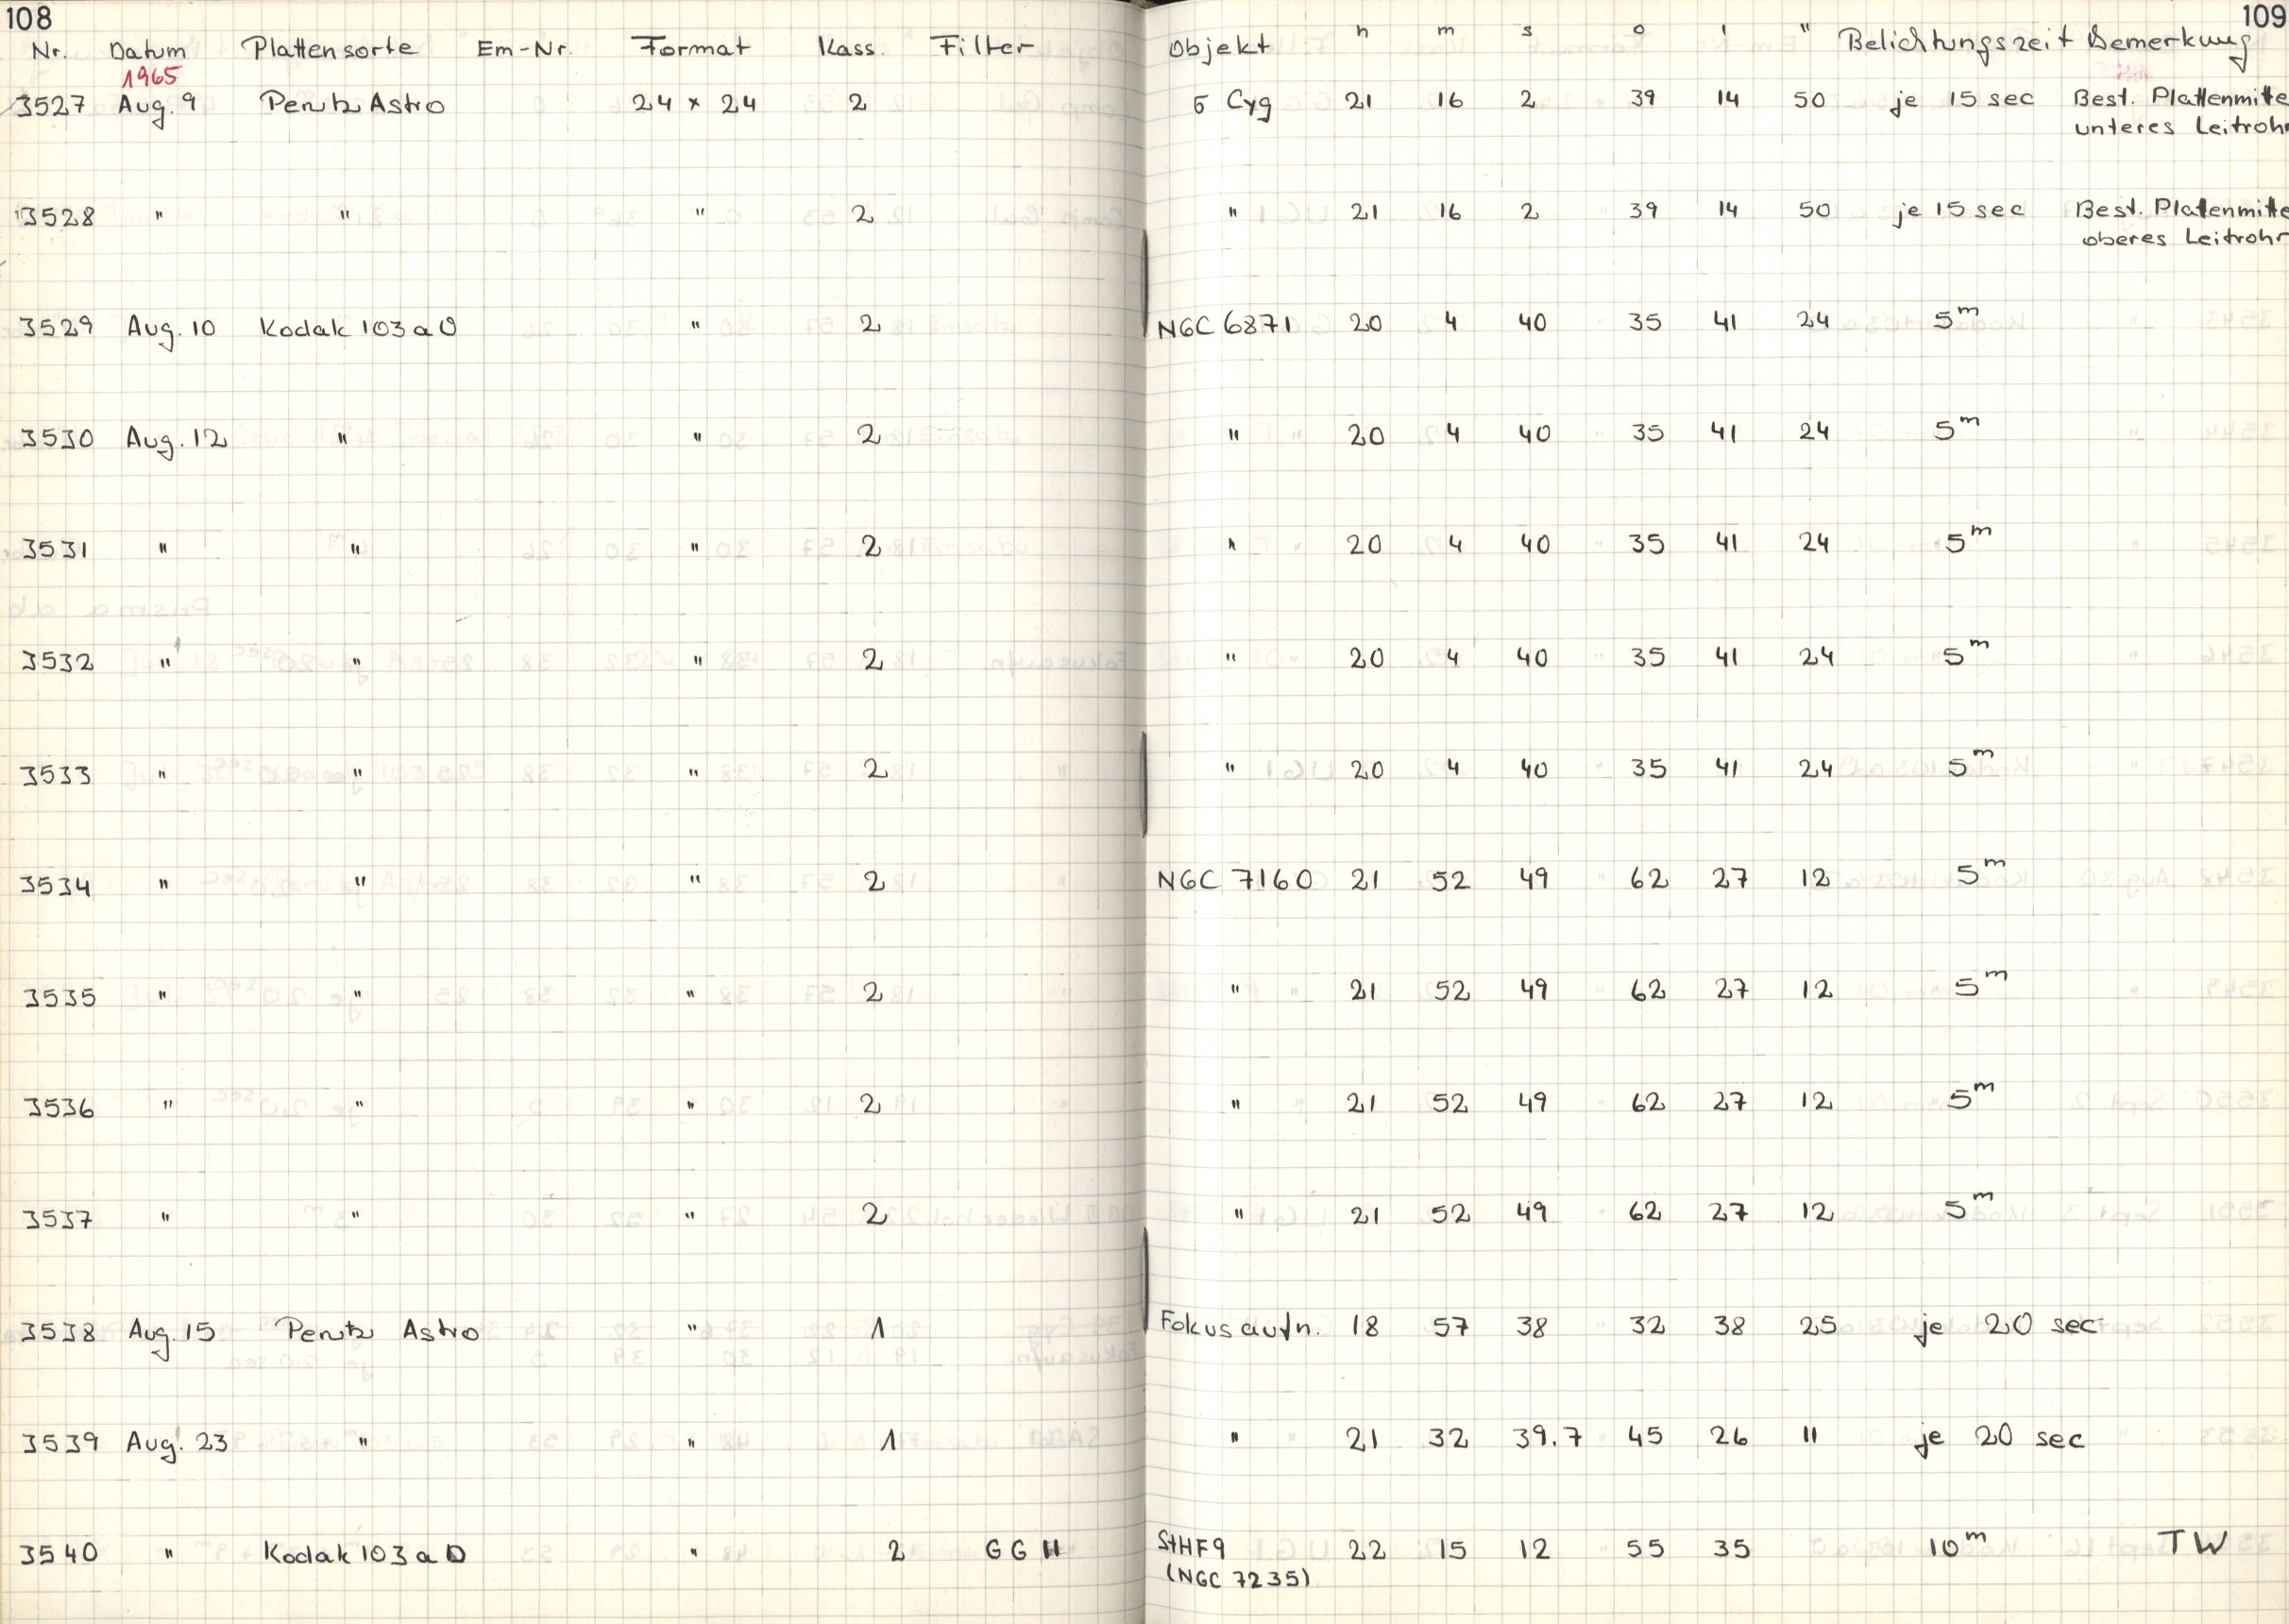 108 109
Nr. Datum Plattensorte Em-Nr. Format Kass. Filter Objekt h m s o ' " Belichtungszeit Bemerkung
1965
3527 Aug. 9 Perutz Astro 24 × 24 2 σ Cyg 21 16 2 39 14 50 je 15 sec Best. Plattenmitte
unteres Leitrohr
3528 " " " 2 " 21 16 2 39 14 50 je 15 sec Best. Plattenmitte
oberes Leitrohr
3529 Aug. 10 Kodak 103 a O " 2 NGC 6871 20 4 40 35 41 24 5m
3530 Aug. 12 " " 2 " 20 4 40 35 41 24 5m
3531 " " " 2 " 20 4 40 35 41 24 5m
3532 " " " 2 " 20 4 40 35 41 24 5m
3533 " " " 2 " 20 4 40 35 41 24 5m
3534 " " " 2 NGC 7160 21 52 49 62 27 12 5m
3535 " " " 2 " 21 52 49 62 27 12 5m
3536 " " " 2 " 21 52 49 62 27 12 5m
3537 " " " 2 " 21 52 49 62 27 12 5m
3538 Aug. 15 Perutz Astro " 1 Fokusaufn. 18 57 38 32 38 25 je 20 sec
3539 Aug. 23 " " 1 " 21 32 39.7 45 26 11 je 20 sec
3540 " Kodak 103 a D " 2 GG 11 StHF9 22 15 12 55 35 10m TW
(NGC 7235)